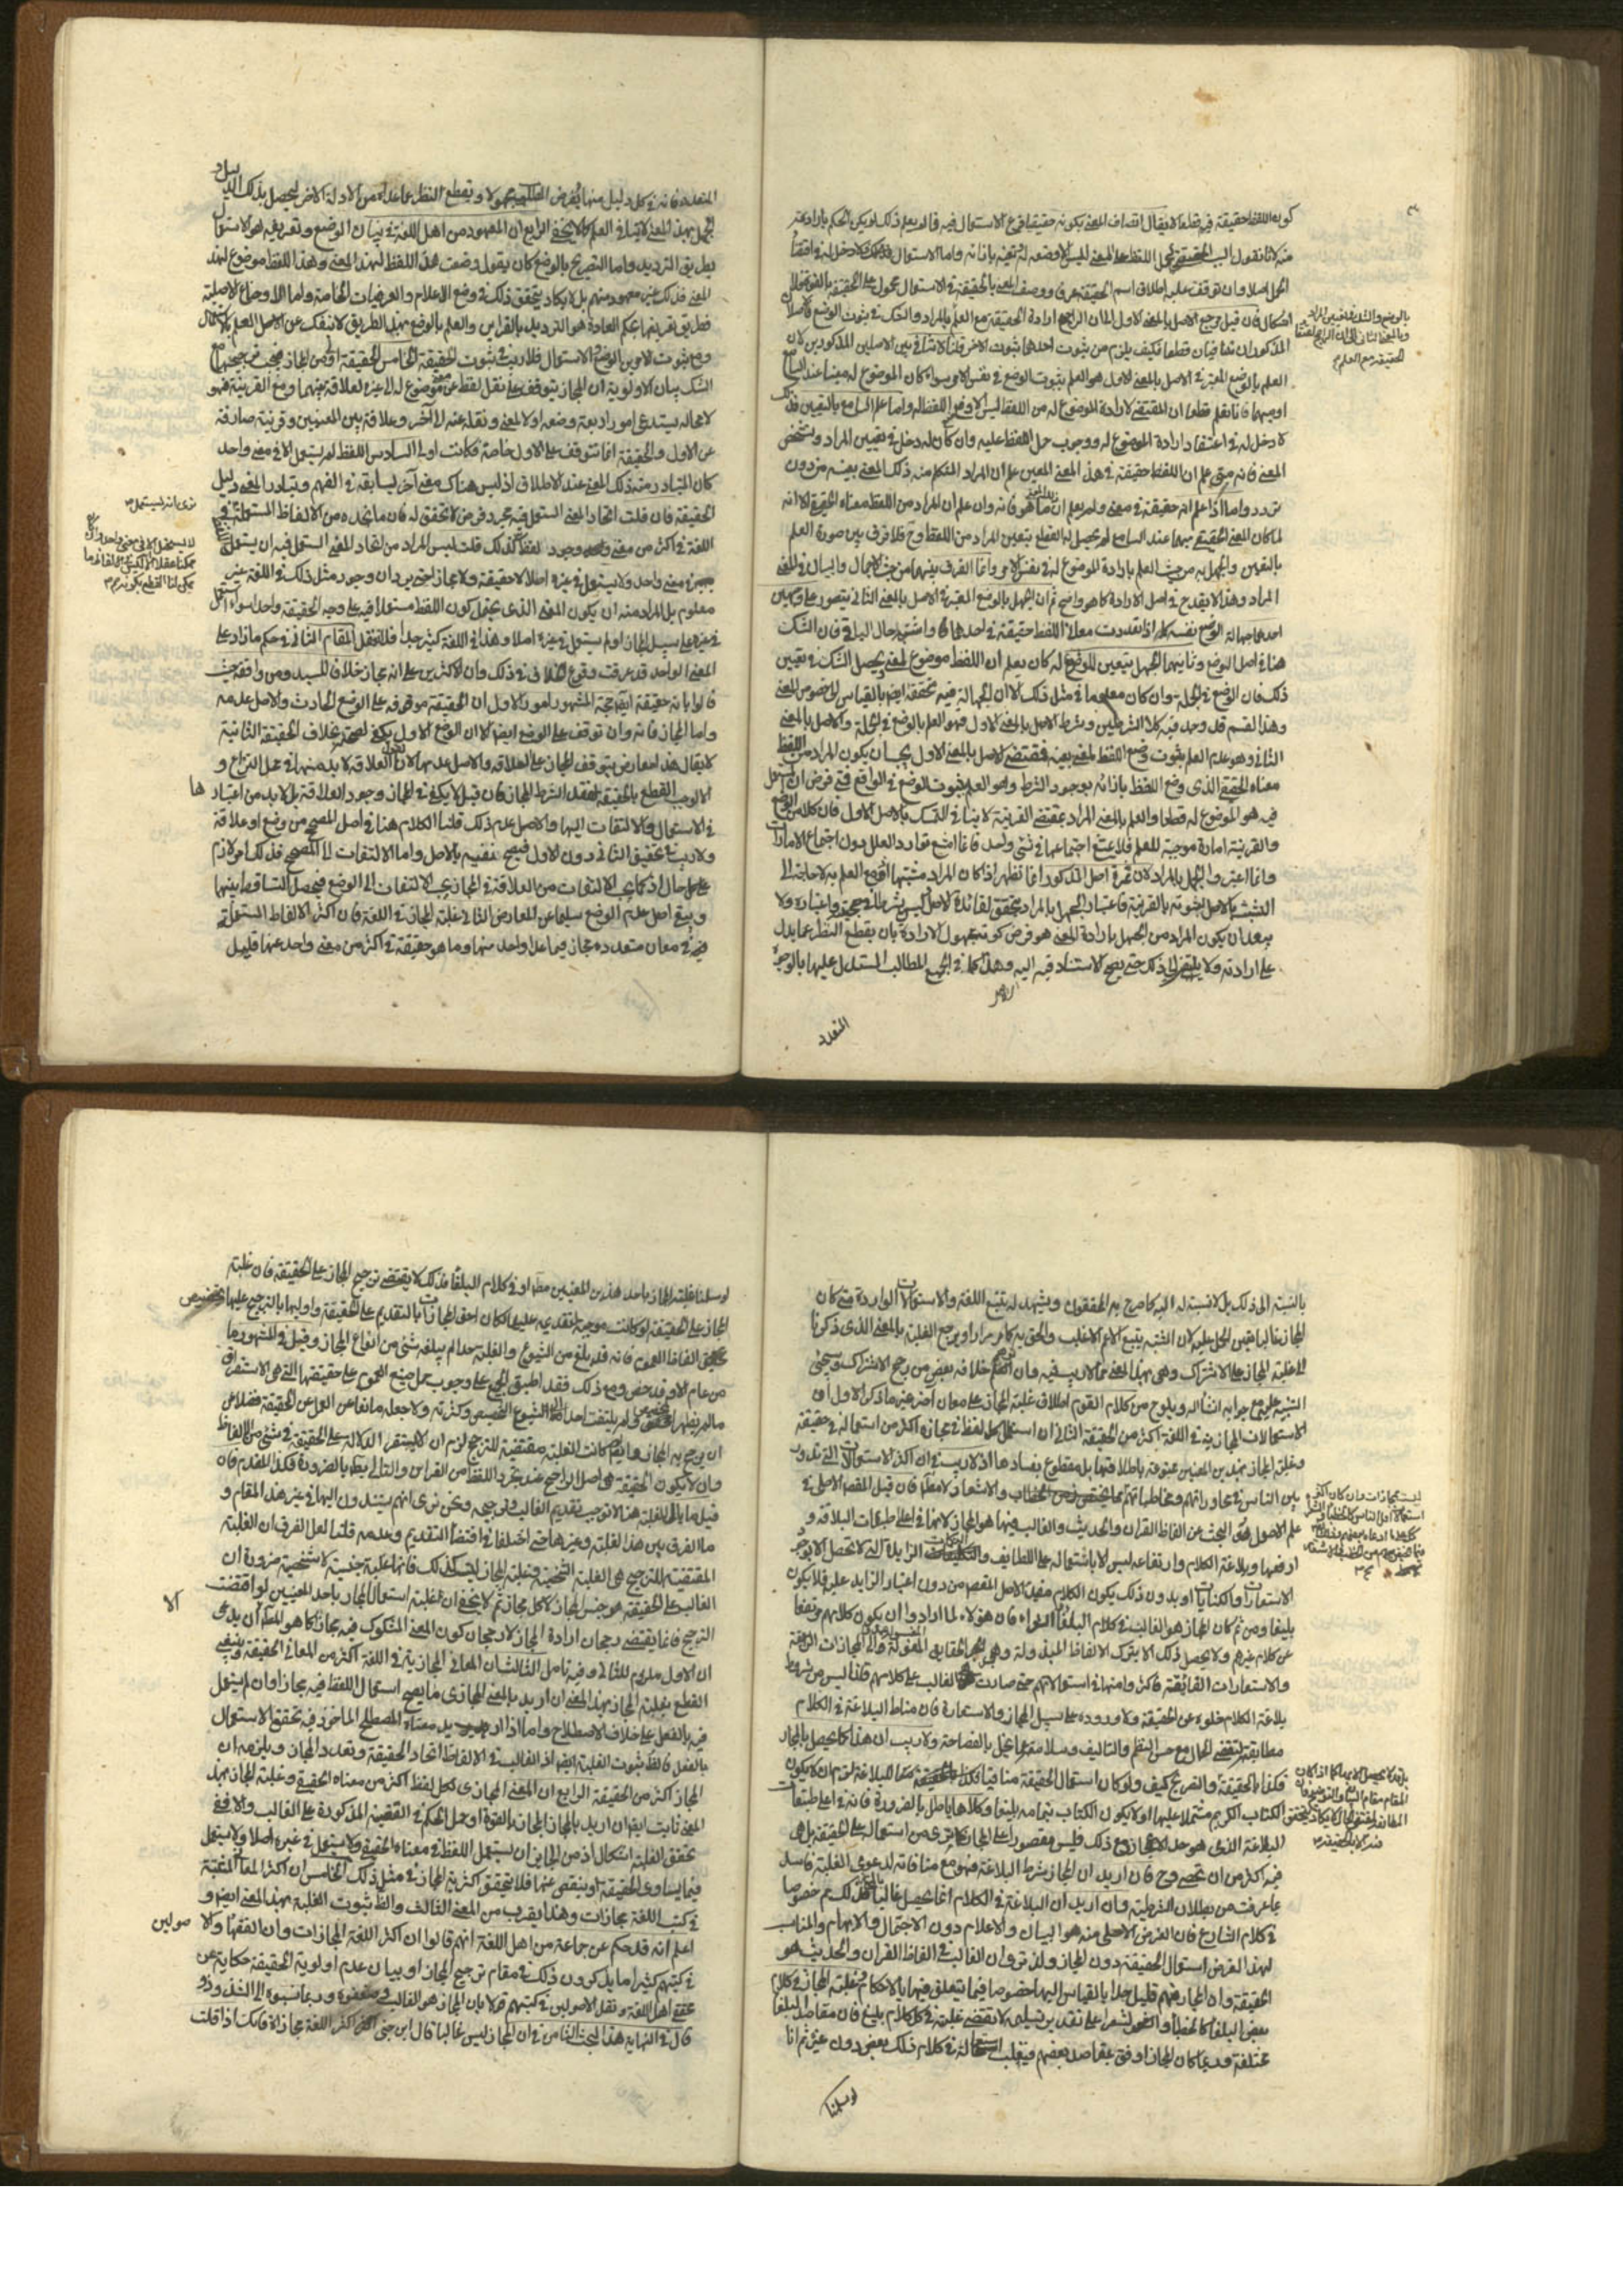 كون اللفظ حقيقة فيه قطعا لا يقال اتصاف المعنى بكونه حقيقيا فرع الاستعمال فيه فما لم يعلم ذلك لم يكن الحكم بارادته
منه لانا نقول السبب لحمل اللفظ على المعنى ليس الا وضعه له وتعينه بازائه واما الاستعمال فلا دخل له في اقتضاء
الحمل اصلا وان توقف عليه اطلاق اسم الحقيقة عرفا ووصف المعنى بالحقيقة في الاستعمال محمول على الحقيقة بالقوة فلا
اشكال فان قيل مرجع الاصل بالمعنى الاول الى ان الراجح ارادة الحقيقة مع العلم بالمراد والشك في ثبوت الوضع فالاصلان
المذكوران متنافيان قطعا فكيف يلزم من ثبوت احدهما ثبوت الاخر قلنا لا تنافي بين الاصلين المذكورين لان
العلم بالوضع المعتبر في الاصل بالمعنى الاول هو العلم بثبوت الوضع في نفس الامر سواء كان الموضوع له مبينا عند السامع
او مبهما فانا نعلم قطعا ان المقتضى لارادة الموضوع له من اللفظ ليس الا وضع اللفظ له واما علم السامع بالتعيين فذلك
لا دخل له في اعتقاد ارادة الموضوع له ووجوب حمل اللفظ عليه وان كان له دخل في تعيين المراد وتشخص
المعنى فانه متى علم ان اللفظ حقيقة في هذا المعنى المعين علم ان المراد المتكلم منه ذلك المعنى بعينه من دون
تردد واما اذا علم انه حقيقة في معنى ولم يعلم ان ذلك المعنى ما هو فانه وان علم ان المراد من اللفظ معناه الحقيقي الا انه
لما كان المعنى الحقيقي مبهما عند السامع لم يحصل له القطع بتعيين المراد من اللفظ وح فلا فرق بين صورة العلم
بالتعيين والجهل به من حيث العلم بارادة الموضوع له في نفس الامر وانما الفرق بينهما من حيث الاجمال والبيان في المعنى
المراد وهذا لا يقدح في اصل الارادة كما هو واضح ثم ان الجهل بالوضع المعتبر في الاصل بالمعنى الثاني يتصور على وجهين
احدهما جهالة الوضع نفسه كما اذا تعددت معاني اللفظ حقيقة في احدها واشتبه حال الباقي فان الشك
هنا في اصل الوضع وثانيهما الجهل بتعيين الموضوع له كان يعلم ان اللفظ موضوع لمعنى ويحصل الشك في تعيين
ذلك فان الوضع في الجملة وان كان معلوما في مثل ذلك الا ان الجهالة فيه متحققة ايضا بالقياس الى خصوص المعنى
وهذا القسم قد وجد فيه كلا الشرطين وشرط الاصل بالمعنى الاول فهو العلم بالوضع في الجملة والاصل بالمعنى
الثاني وهو عدم العلم بثبوت وضع اللفظ لمعنى بعينه فمقتضى الاصل بالمعنى الاول يجب ان يكون المراد من اللفظ
معناه الحقيقي الذي وضع اللفظ بازائه لوجود الشرط وهو العلم بثبوت الوضع في الواقع فمتى فرض ان المستعمل
فيه هو الموضوع له قطعا والعلم بالمعنى المراد بمقتضى القرينة لا ينافي التمسك بالاصل الاول فان كلا من الوضع
والقرينة امارة موجبة للعلم فلا يمتنع اجتماعهما في شيء واحد فانما امتنع توارد العلل دون اجتماع الامارات
وانما اعتبر والجهل بالمراد لان ثمرة اصل المذكور انما تظهر اذا كان المراد مشتبها اذ مع العلم به لا حاجة الى
التشبث بالاصل لثبوته بالقرينة فاعتبار الجهل بالمراد لتحقق فائدة الاصل ليس شرطا في حجيته واعتباره ولا
يبعد ان يكون المراد من الجهل بارادة المعنى هو فرض كونه مجهول الارادة بان يقطع النظر عما يدل
على ارادته ولا يلتفت الى ذلك حتى يصح الاستناد فيه اليه وهذا كما في جميع المطالب المستدل عليها بالوجوه
المتعدد
بالوضع والشك في تعيين المراد
وبالمعنى الثاني الى ان الراجح انتفاء
الحقيقة مع العلم
المتعددة فانه في كل دليل منها يفرض المطلب مجهولا ويقطع النظر عما عداه من الادلة الاخر ليحصل بذلك الدليل
الجهل بهذا المعنى لا ينافي العلم كما لا يخفى الرابع ان المعهود من اهل اللغة في بيان الوضع وتعريفه هو الاستعمال
بطريق الترديد واما التصريح بالوضع كان يقول وضعت هذا اللفظ لهذا المعنى وهذا اللفظ موضوع لهذا
المعنى فذلك غير معهود منهم بل لا يكاد يتحقق ذلك في وضع الاعلام والعرفيات الخاصة واما الاوضاع الاصلية
فطريق تعريفها بحكم العادة هو الترديد بالقراين والعلم بالوضع بهذا الطريق لا ينفك عن الاصل العلم بالاستعمال
ومع ثبوت الامرين الوضع والاستعمال فلا ريب في ثبوت الحقيقة الخامس الحقيقة اولى من المجاز فيجب ترجيحها مع
الشك بيان الاولوية ان المجاز يتوقف على نقل لفظ عن معنى موضوع له الى غيره لعلاقة بينهما ومع القرينة فهو
لا محالة يستدعي امورا اربعة وضعه اولا لمعنى ونقله عنه الى آخر وعلاقة بين المعنيين وقرينة صارفة
عن الاول والحقيقة انما تتوقف على الاول خاصة فكانت اولى السادس اللفظ لم يستعمل الا في معنى واحد
كان المتبادر منه ذلك المعنى عند الاطلاق اذ ليس هناك معنى آخر يسابقه في الفهم وتبادر المعنى دليل
الحقيقة فان قلت اتحاد المعنى المستعمل فيه مجرد فرض لا تحقق له فان ما نجده من الالفاظ المستعملة في
اللغة في اكثر من معنى وجود لفظ كذلك قلت ليس المراد من اتحاد المعنى المستعمل فيه ان يستعمل
في معنى واحد ولا يستعمل في غيره اصلا لا حقيقة ولا مجازا حتى يرد ان وجود مثل ذلك في اللغة غير
معلوم بل المراد منه ان يكون المعنى الذي يحتمل كون اللفظ مستعملا فيه على وجه الحقيقة واحدا سواء استعمل
في غيره على سبيل المجاز او لم يستعمل في غيره اصلا وهذا في اللغة كثير جدا فلا تغفل المقام الثاني في حكم ما زاد على
المعنى الواحد قد عرفت وقوع الخلاف في ذلك وان الاكثرين على انه مجاز خلافا للسيد ومن وافقه حيث
قالوا بانه حقيقة ايضا حجة المشهور امور الاول ان الحقيقة موقوفة على الوضع الحادث والاصل عدمه
واما المجاز فانه وان توقف على الوضع ايضا الا ان الوضع الاول يكفي لصحته بخلاف الحقيقة الثانية
لا يقال هذا معارض بتوقف المجاز على العلاقة والاصل عدمها لانا نقول العلاقة لا بد منها في محل النزاع و
الا لوجب القطع بالحقيقة لفقد الشرط المجاز فان قيل لا يكفي في المجاز وجود العلاقة بل لا بد من اعتبارها
في الاستعمال والالتفات اليها والاصل عدم ذلك قلنا الكلام هنا في اصل المصحح من وضع او علاقة
ولا ريب في تحقيق الثاني دون الاول فيصح نفيه بالاصل واما الالتفات الى المصحح فذلك امر لازم
على كل حال اذ كما يجب الالتفات من العلاقة في المجاز يجب الالتفات الى الوضع فيحصل التساقط بينهما
ويبقى اصل عدم الوضع سليما عن المعارض الثاني غلبة المجاز في اللغة فان اكثر الالفاظ المستعملة
فيها في معان متعددة مجاز فيما عدا واحد منها وما هو حقيقة في اكثر من معنى واحد عنها قليل
نرى انه ليستعمل
لا يستعمل الا في معنى واحد وان كان
ممكنا عقلا
يمكن لنا القطع بكونه
بالنسبة الى ذلك بل لا نسبة له اليه كما صرح به المحققون ويشهد له تتبع اللغة والاستعمالات الواردة فمتى كان
المجاز غالبا تعين الحمل عليه لان المشتبه يتبع الاعم الاغلب والحق به كما مر مرارا ومرجع الغلبة بالمعنى الذي ذكرنا
الى غلبة المجاز على الاشتراك وهي بهذا المعنى مما لا ريب فيه وان توهم خلافه بعض من رجح الاشتراك وسيجيء
التنبيه عليه مع جوابه انشاء الله ويلوح من كلام القوم اطلاق غلبة المجاز على معان اخر غير ما ذكر الاول ان
الاستعمالات المجازية في اللغة اكثر من الحقيقة الثاني ان استعمال كل لفظ في مجازه اكثر من استعماله في حقيقة
وغلبة المجاز بهذين المعنيين ممنوعة باطلاقها بل مقطوع بفسادها اذ لا ريب في ان اكثر الاستعمالات التي تدور
بين الناس في محاوراتهم ومخاطباتهم مما يختص فن الخطاب والاشعار لا مطلقا فان قيل المقصد الاصلي في
علم الاصول هو البحث عن الفاظ القران والحديث والغالب فيهما هو المجاز لانهما في اعلى طبقات البلاغة و
ارفعها وبلاغة الكلام وارتفاعه ليس الا باشتماله على اللطايف والنكات الزايدة التي لا تحصل الا بوجوه
الاستعارات والكنايات او بدون ذلك يكون الكلام مفيدا لاصل المقصود من دون اعتبار الزايد عليه فلا يكون
بليغا ومن ثم كان المجاز هو الغالب في كلام البلغاء فان هؤلاء لما ارادوا ان يكون كلامهم مرتفعا
عن كلام غيرهم ولا يحصل ذلك الا بترك الالفاظ المبذولة والمجازات الرائقة
والاستعارات الفائقة فاكثروا منها في استعمالاتهم حتى صارت الغالب على كلامهم قلنا ليس من شروط
بلاغة الكلام خلوه عن الحقيقة ولا وروده على سبيل المجاز والاستعارة فان مناط البلاغة في الكلام
مطابقته لمقتضى الحال مع حسن النظم والتاليف وسلامته عما يخل بالفصاحة ولا ريب ان هذا كما يحصل بالمجاز
فكذا بالحقيقة والتصريح كيف ولو كان استعمال الحقيقة منافيا للبلاغة لزم ان لا يكون
الكتاب الكريم مشتملا عليها او لا يكون الكتاب بتمامه بليغا وكلاهما باطل بالضرورة فانه في اعلى طبقات
البلاغة الذي هو حد الاعجاز ومع ذلك فليس مقصورا على المجاز لما نرى من استعماله على الحقيقة بل هي
فيه اكثر من ان تحصى وح فان اريد ان المجاز شرط البلاغة فهو مع منافاته لدعوى الغلبة فاسد
بما عرفت من بطلان الشرطية وان اريد ان البلاغة في الكلام انما يحصل غالبا بالمجاز فذلك مم خصوصا
في كلام الشارع فان الغرض الاصلي منه هو البيان والاعلام دون الاجمال والابهام والمناسب
لهذا الغرض استعمال الحقيقة دون المجاز ولذا ترى ان الغالب في الفاظ القران والحديث هو
الحقيقة وان المجاز فيهم قليل جدا بالقياس اليها خصوصا فيما يتعلق فيها بالاحكام وغلبة المجاز في كلام
بعض البلغاء كالخطباء والشعراء على تقدير تسليمه لا يقتضي غلبته في كل كلام بليغ فان مقاصد البلغاء
مختلفة وربما كان المجاز اوفق بمقاصد بعضهم فيغلب استعماله في كلام ذلك بعض دون غيره ثم انا
لو سلمنا
ليست مجازات وان كان اكثر
بل قد لا يحصل الا بها كما اذا كان
المقام مقام البيان والتوضيح فان
المطابقة لمقتضى الحال لا يكاد يتحقق
فيه الا بالحقيقة
لو سلمنا غلبة المجاز باحد هذين المعنيين مطلقا او في كلام البلغاء فذلك لا يقتضي ترجيح المجاز على الحقيقة فان غلبة
المجاز على الحقيقة لو كانت موجبة لتقديمه عليها لكان احق المجازات بالتقديم على الحقيقة واوليها بالترجيح عليها تخصيص
الفاظ العموم فانه قد بلغ من الشيوع والغلبة حدا لم يبلغه شيء من انواع المجاز وقيل في المشهور ما
من عام الا وقد خص ومع ذلك فقد اطبق الجميع على وجوب حمل صيغ العموم على حقيقتها التي هي الاستغراق
ما لم يظهر المخصص ولم يلتفت احد الى شيوع التخصيص وكثرته ولا جعله مانعا من الحمل على الحقيقة فضلا عن
ان يرجح به المجاز وايضا لو كانت الغلبة مقتضية للترجيح لزم ان لا يستقر الدلالة على الحقيقة في شيء من الالفاظ
وان لا يكون الحقيقة هي اصل الراجح عند تجرد اللفظ من القراين والتالي بط بالضرورة فكذا المقدم فان
قيل ما بال الغلبة هنا لا توجب تقديم الغالب وترجيحه ونحن نرى انهم يستندون اليها في غير هذا المقام و
ما الفرق بين هذا الغلبة وغيرها حتى اختلفا في اقتضاء التقديم وعدمه قلنا لعل الفرق ان الغلبة
المقتضية للترجيح هي الغلبة الشخصية وغلبة المجاز ليست كذلك فانها غلبة جنسية لا شخصية ضرورة ان
الغالب على الحقيقة هو جنس المجاز لا كل مجاز ثم لا يخفى ان غلبة استعمال المجاز باحد المعنيين لو اقتضت
الترجيح فانما يقتضي رجحان ارادة المجاز لا رجحان كون المعنى المشكوك فيه مجازا كما هو المط الا ان يدعى
ان الاول ملزوم للثاني وفيه تامل الثالث ان المعاني المجازية في اللغة اكثر من المعاني الحقيقة وينبغي
القطع بغلبة المجاز بهذا المعنى ان اريد بالمعنى المجازي ما يصح استعمال اللفظ فيه مجازا وان لم يستعمل
فيه بالفعل على خلاف الاصطلاح واما اذا اريد معناه المصطلح الماخوذ فيه تحقق الاستعمال
بالفعل فالظ ثبوت الغلبة ايضا اذ الغالب في الالفاظ اتحاد الحقيقة وتعدد المجاز ويلزمه ان
المجاز اكثر من الحقيقة الرابع ان المعنى المجازي لكل لفظ اكثر من معناه الحقيقي وغلبة المجاز بهذا
المعنى ثابت ايضا ان اريد بالمجاز المجاز بالقوة او حمل الحكم في القضية المذكورة على الغالب والا ففي
تحقق الغلبة اشكال اذ من الجايز ان يستعمل اللفظ في معناه الحقيقي ولا يستعمل في غيره اصلا ولا يستعمل
فيما يساوى الحقيقة او ينقص عنها فلا يتحقق اكثرية المجاز في مثل ذلك الخامس ان اكثر المعاني المثبتة
في كتب اللغة مجازات وهذا يقرب من المعنى الثالث والظ ثبوت الغلبة بهذا المعنى ايضا و
اعلم انه قد حكى عن جماعة من اهل اللغة انهم قالوا ان اكثر اللغة المجازات وان الفقهاء والاصوليين
في كتبهم كثيرا ما يذكرون ذلك في مقام ترجيح المجاز او بيان عدم اولوية الحقيقة حكاية عن
محققي اهل اللغة ونقل الاصوليين في كتبهم قولا بان المجاز هو الغالب وربما نسبوه الى الشذوذ
قال في النهاية هذا البحث الثامن في ان المجاز ليس غالبا قال ابن جني اكثر اللغة مجازا فانك اذا قلت